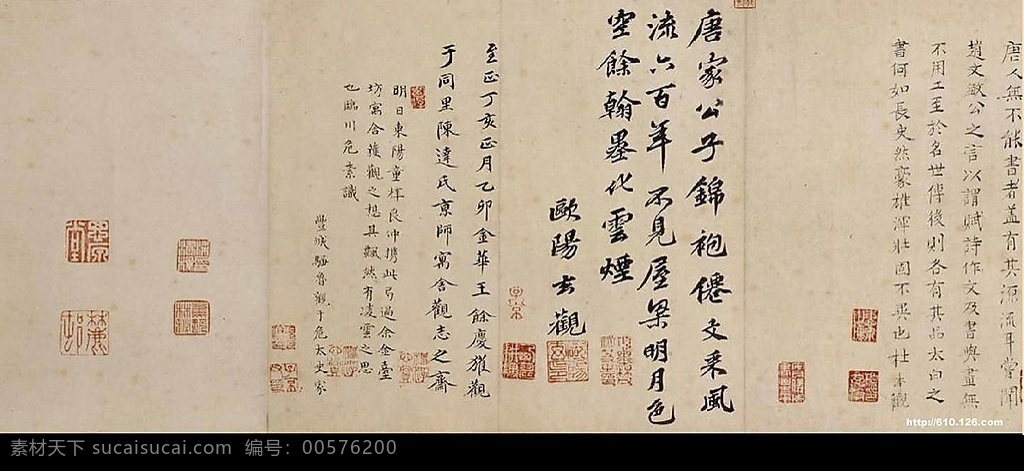 唐人無不能書者蓋有其源流耳嘗聞
趙文敏公之言以謂賦詩作文及書與畫無
不用工至於名世傳後則各有其品太白之
書何如長史然豪雄渾壯固不異也杜本觀
唐家公子錦袍僊文采風
流六百年不見屋梁明月色
空餘翰墨化雲煙
歐陽玄觀
至正丁亥正月乙卯金華王餘慶獲觀
于同里陳達氏京師寓舍觀志之齋
明日東陽童梓良仲携此局過余金臺
坊寓舍獲觀之想其飄然有凌雲之思
也臨川危素識
豐城騶魯觀于危太史家
http://610.126.com
素材天下 sucaisucai.com 编号：00576200